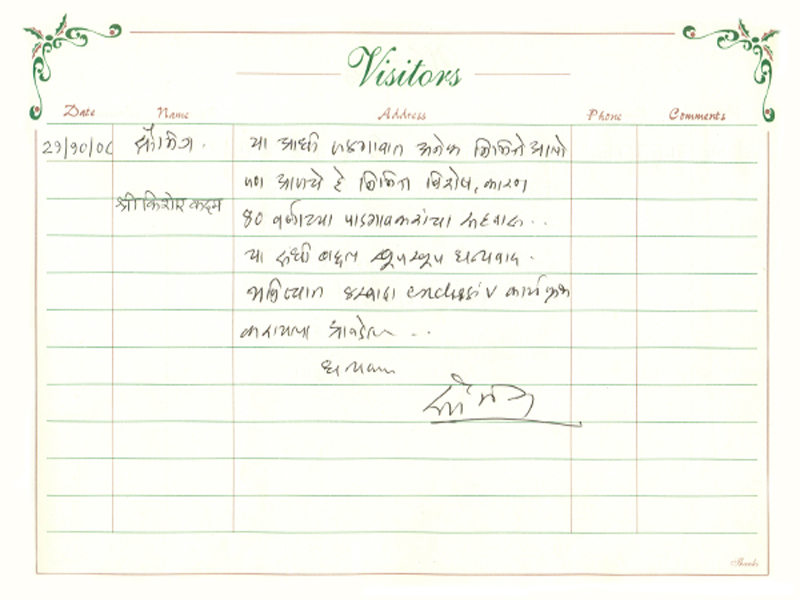 Visitors
Date Name Address Phone Comments
29/10/06 सौमित्र . या आधी गडगावात अनेक निमित्ते आलो
पण आजचे हे निमित्त विशेष, कारण
श्री किशोर कदम
80 वर्षाच्या पाडगावकरांचा सहवास . .
या संधी बद्दल खूप खूप धन्यवाद .
भविष्यात कार्यक्रम
करायला आवडेल . .
धन्यवाद
सौमित्र
Thanks